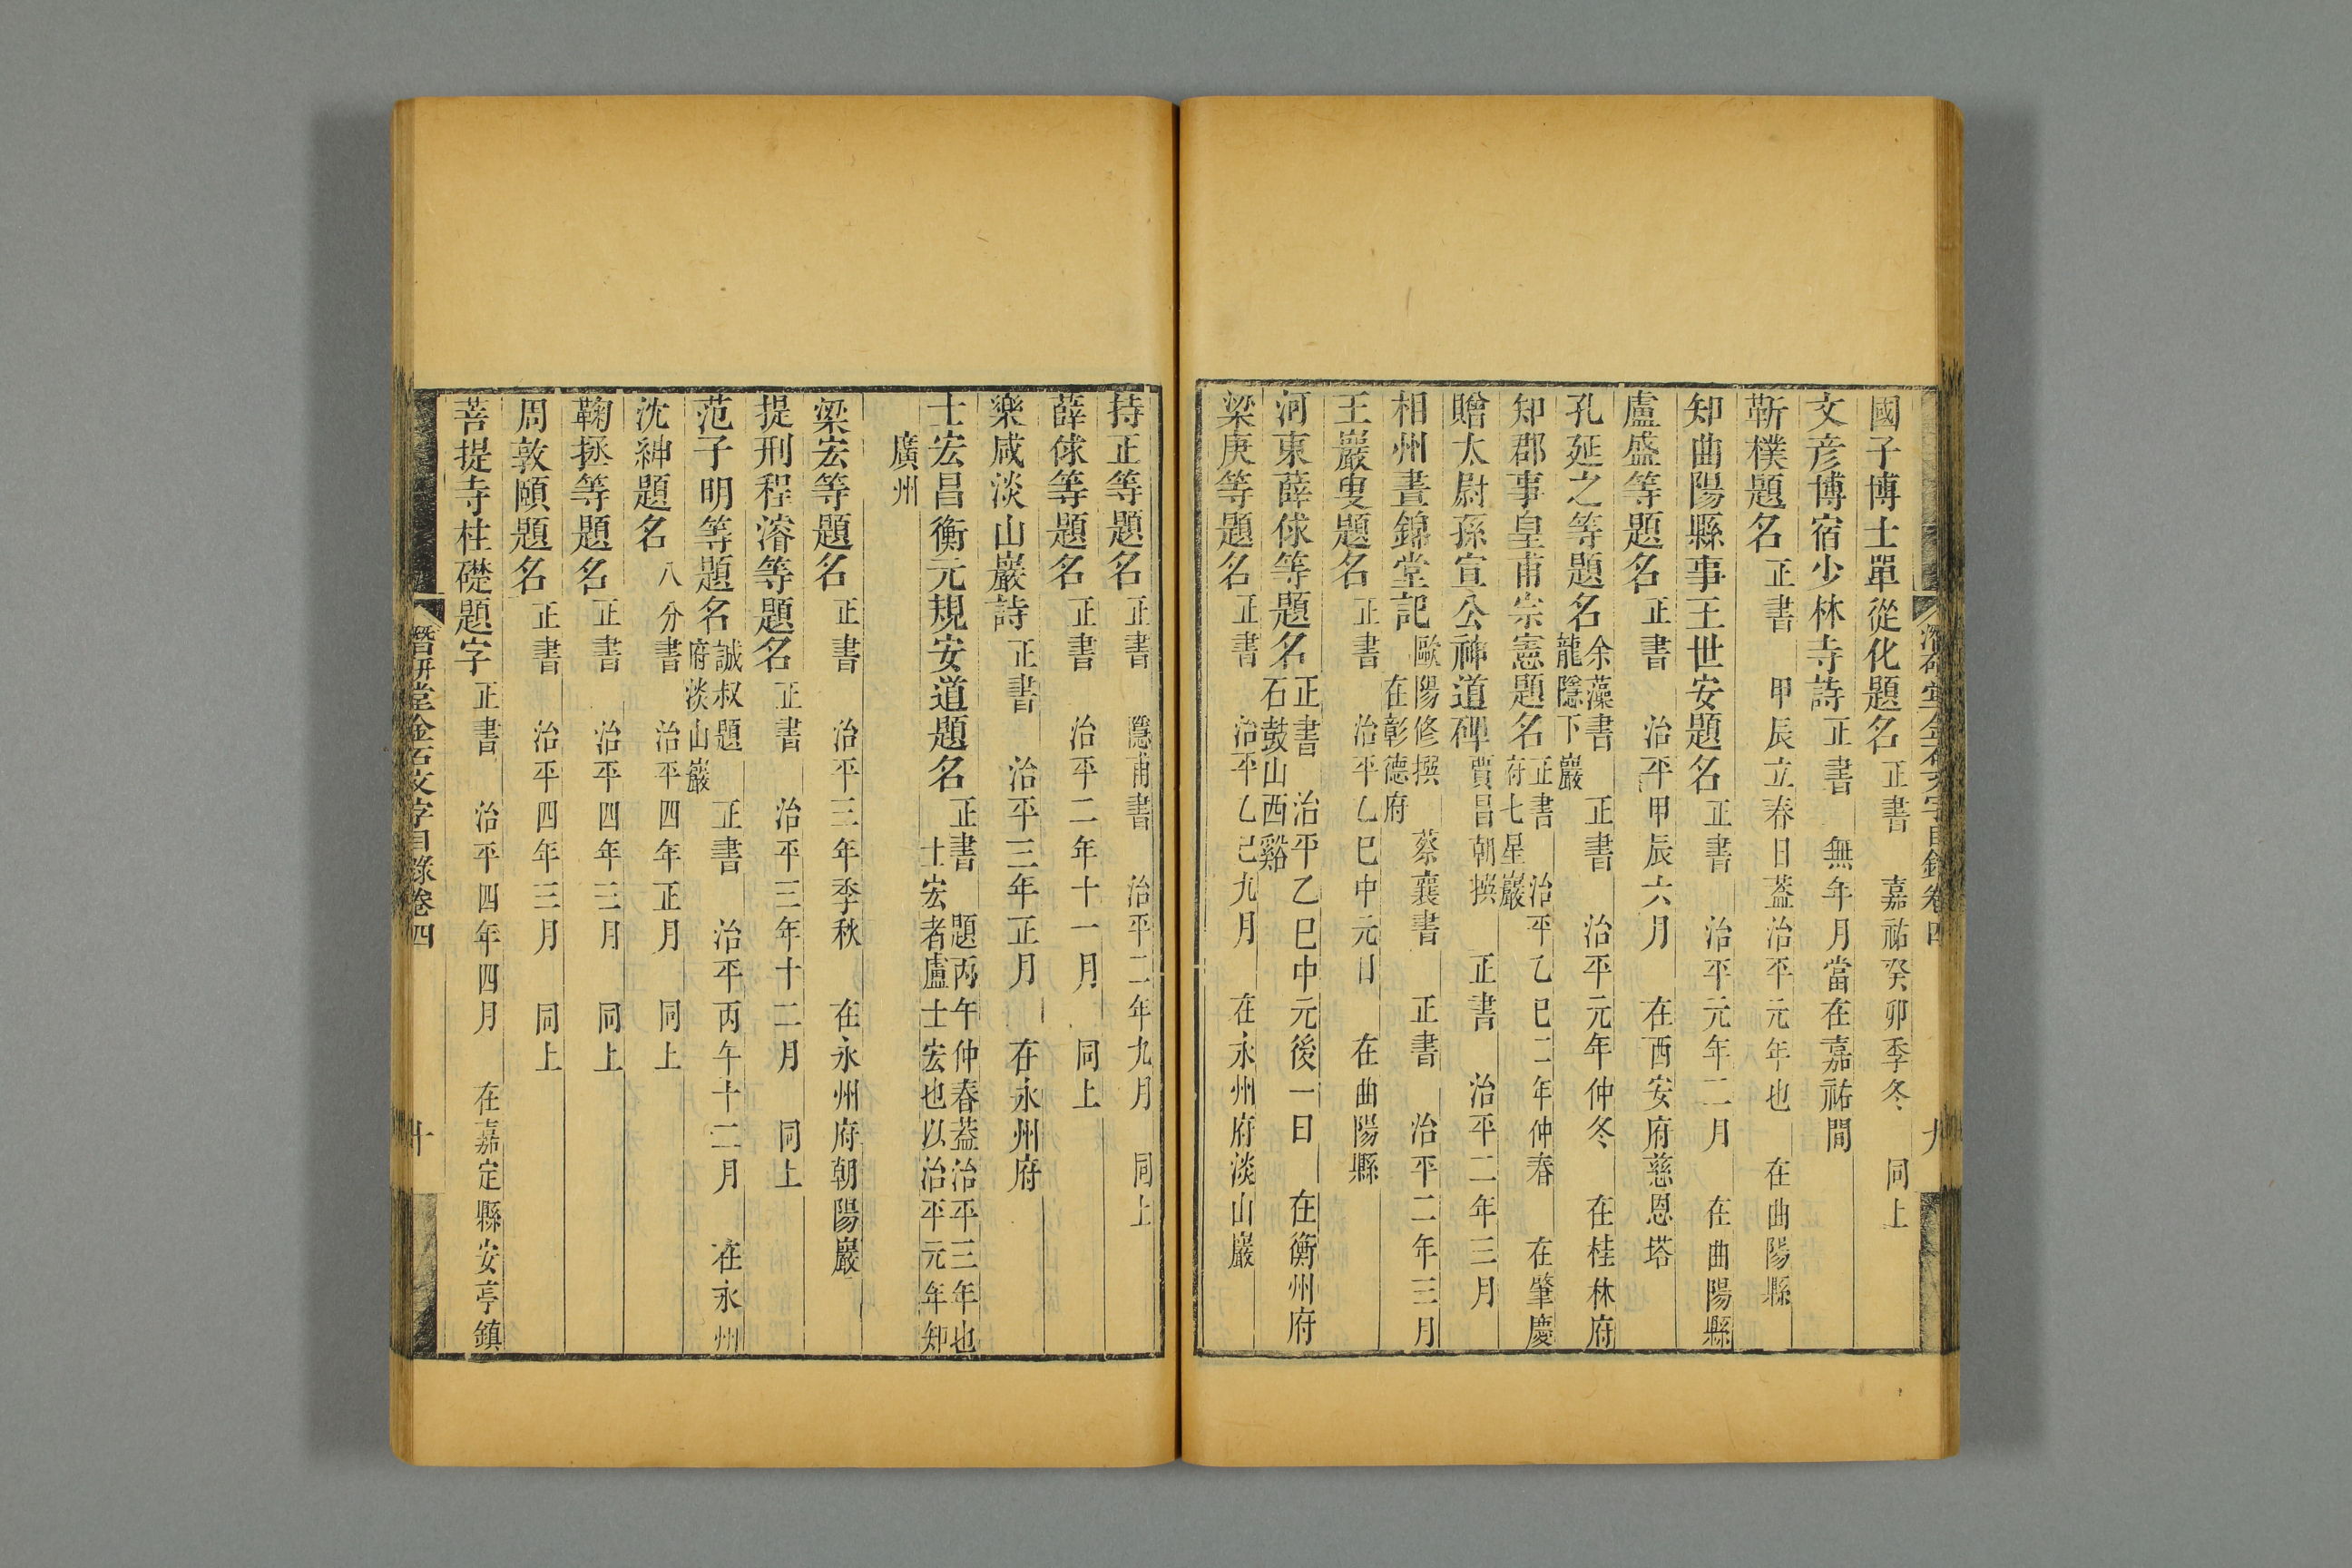 國子博士單從化題名 正書 嘉祐癸卯季冬 同上
文彥博宿少林寺詩 正書 無年月當在嘉祐間
靳樸題名 正書 甲辰立春日葢治平元年也 在曲陽縣
知曲陽縣事王世安題名 正書 治平元年二月 在曲陽縣
盧盛等題名 正書 治平甲辰六月 在西安府慈恩塔
孔延之等題名 余藻書 正書 治平元年仲冬 在桂林府
龍隱下巖
知郡事皇甫宗憲題名 正書 治平乙巳二年仲春 在肇慶
府七星巖
贈太尉孫宣公神道碑 賈昌朝撰 正書 治平二年三月
相州晝錦堂記 歐陽修撰 蔡襄書 正書 治平二年三月
在彰德府
王巖叟題名 正書 治平乙巳中元日 在曲陽縣
河東薛俅等題名 正書 治平乙巳中元後一日 在衡州府
石鼓山西谿
梁庚等題名 正書 治平乙巳九月 在永州府淡山巖
潛研堂金石文字目錄卷四 九
持正等題名 正書 隱甫書 治平二年九月 同上
薛俅等題名 正書 治平二年十一月 同上
樂咸淡山巖詩 正書 治平三年正月 在永州府
士宏昌衡元規安道題名 正書 題丙午仲春葢治平三年也
士宏者盧士宏也以治平元年知
廣州
梁宏等題名 正書 治平三年季秋 在永州府朝陽巖
提刑程濬等題名 正書 治平三年十二月 同上
范子明等題名 誠叔題 正書 治平丙午十二月 在永州
府淡山巖
沈紳題名 八分書 治平四年正月 同上
鞠拯等題名 正書 治平四年三月 同上
周敦頤題名 正書 治平四年三月 同上
菩提寺柱礎題字 正書 治平四年四月 在嘉定縣安亭鎮
潛研堂金石文字目錄卷四 十